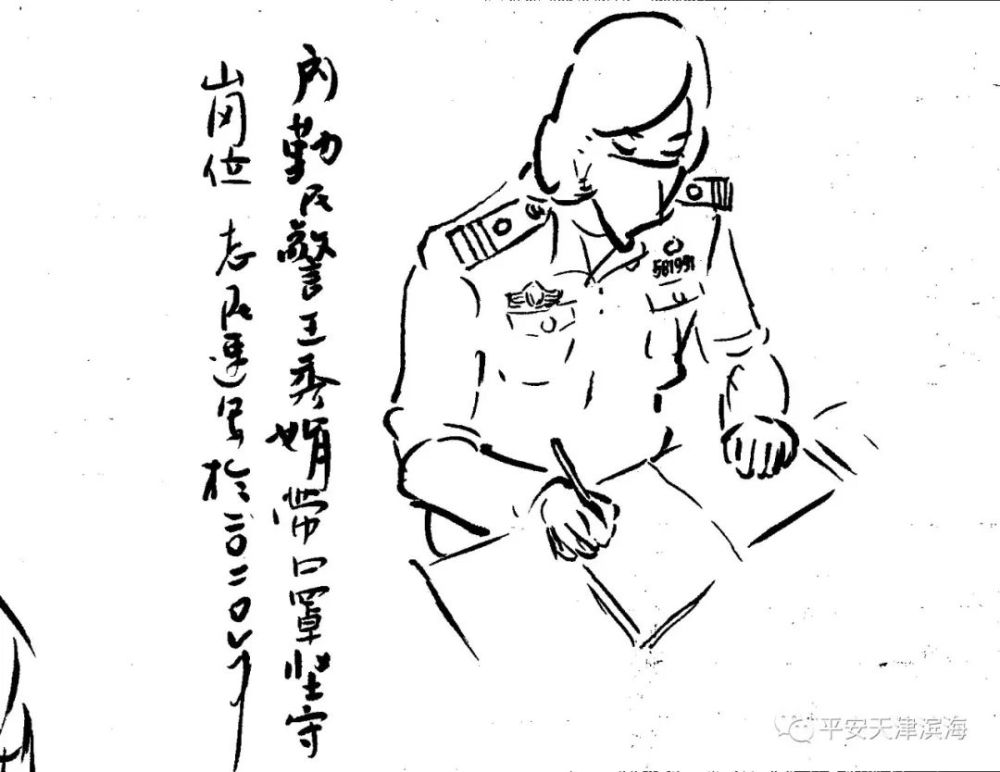 内勤民警王秀娟带口罩坚守
岗位 志民速写于二〇二〇
581991
平安天津滨海